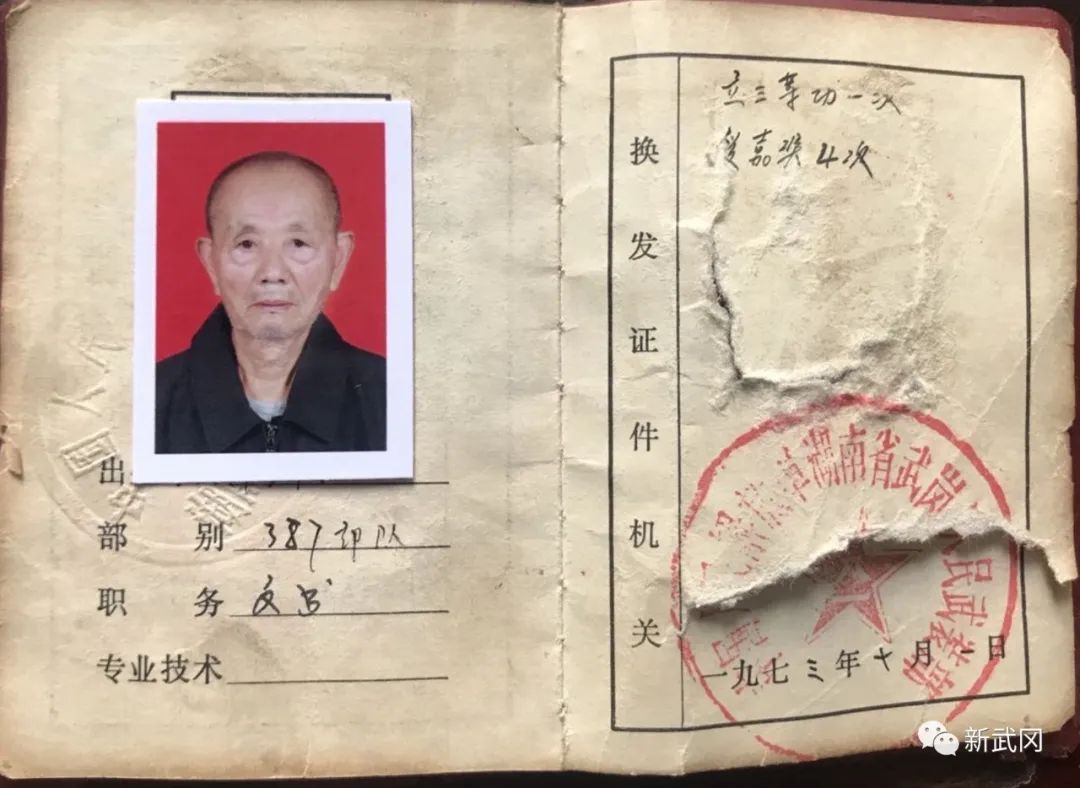 出
部别 387部队
职务 文书
专业技术
换发证件机关
立三等功一次
受嘉奖4次
湖南省武岗
人民武装部
一九七三年十月一日
新武冈